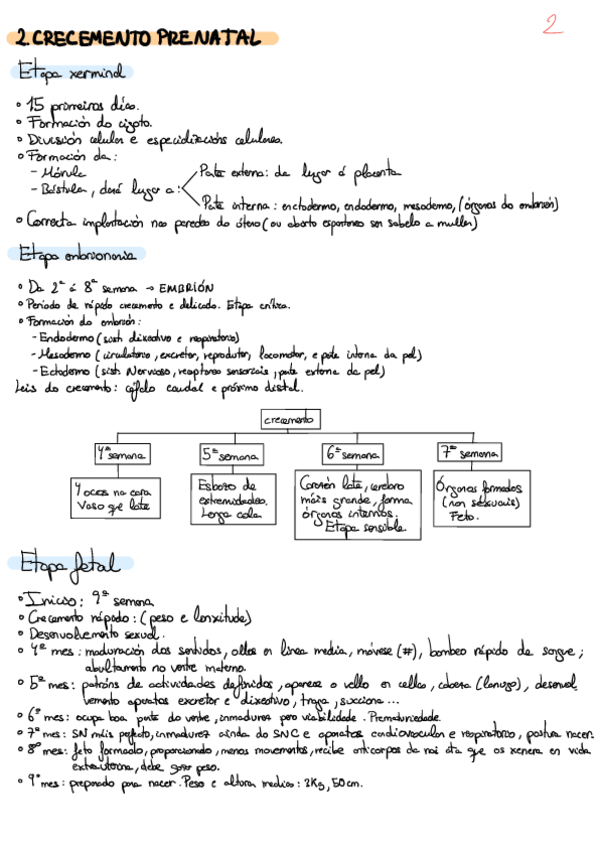 2
2. CRECEMENTO PRENATAL
Etapa xerminal
• 15 primeiros días.
• Formación do cigoto.
• División celular e especializacións celulares.
• Formación da:
- Mórula
- Bástula, dará lugar a:
Parte externa: da lugar á placenta
Parte interna: ectodermo, endodermo, mesodermo, (órganos do embrión)
• Correcta implantación nas paredes do útero (ou aborto espontaneo sen sabelo a muller)
Etapa embrionaria
• Da 2ª á 8ª semana → EMBRIÓN
• Período de rápido crecemento e delicado. Etapa crítica.
• Formación do embrión:
- Endodermo (sist dixestivo e respiratorio)
- Mesodermo (circulatorio, excretor, reprodutor, locomotor, e parte interna da pel)
- Ectodermo (sist Nervioso, receptores sensoriais, parte externa da pel)
Leis do crecemento: céfalo caudal e próximo distal.
crecemento
4ª semana
5ª semana
6ª semana
7ª semana
4 ocos na cara
Vaso que late
Esbozo de
extremidades.
Longa cola
Corazón late, cerebro
máis grande, forma
órganos internos.
Etapa sensible.
Órganos formados
(non sexuais)
Feto.
Etapa fetal
• Inicio: 9ª semana
• Crecemento rápido: (peso e lonxitude)
• Desenvolvemento sexual.
• 4º mes: maduración dos sentidos, ollos en línea media, móvese (#), bombeo rápido de sangue;
abultamento no ventre materno.
• 5º mes: patróns de actividades definidos, aparece o vello en cellas, cabeza (lanugo), desenvol
vemento aparatos excretor e dixestivo, traga, succiona...
• 6º mes: ocupa boa parte do ventre, inmadurez pero viabilidade. Prematuridade.
• 7º mes: SN máis perfecto, inmadurez aínda do SNC e aparatos cardiovascular e respiratorio, postura nacer.
• 8º mes: feto formado, proporcionado, menos movementos, recibe anticorpos da nai ata que os xenera en vida
extrauterina, debe gañar peso.
• 9º mes: preparado para nacer. Peso e altura medios: 3Kg, 50cm.